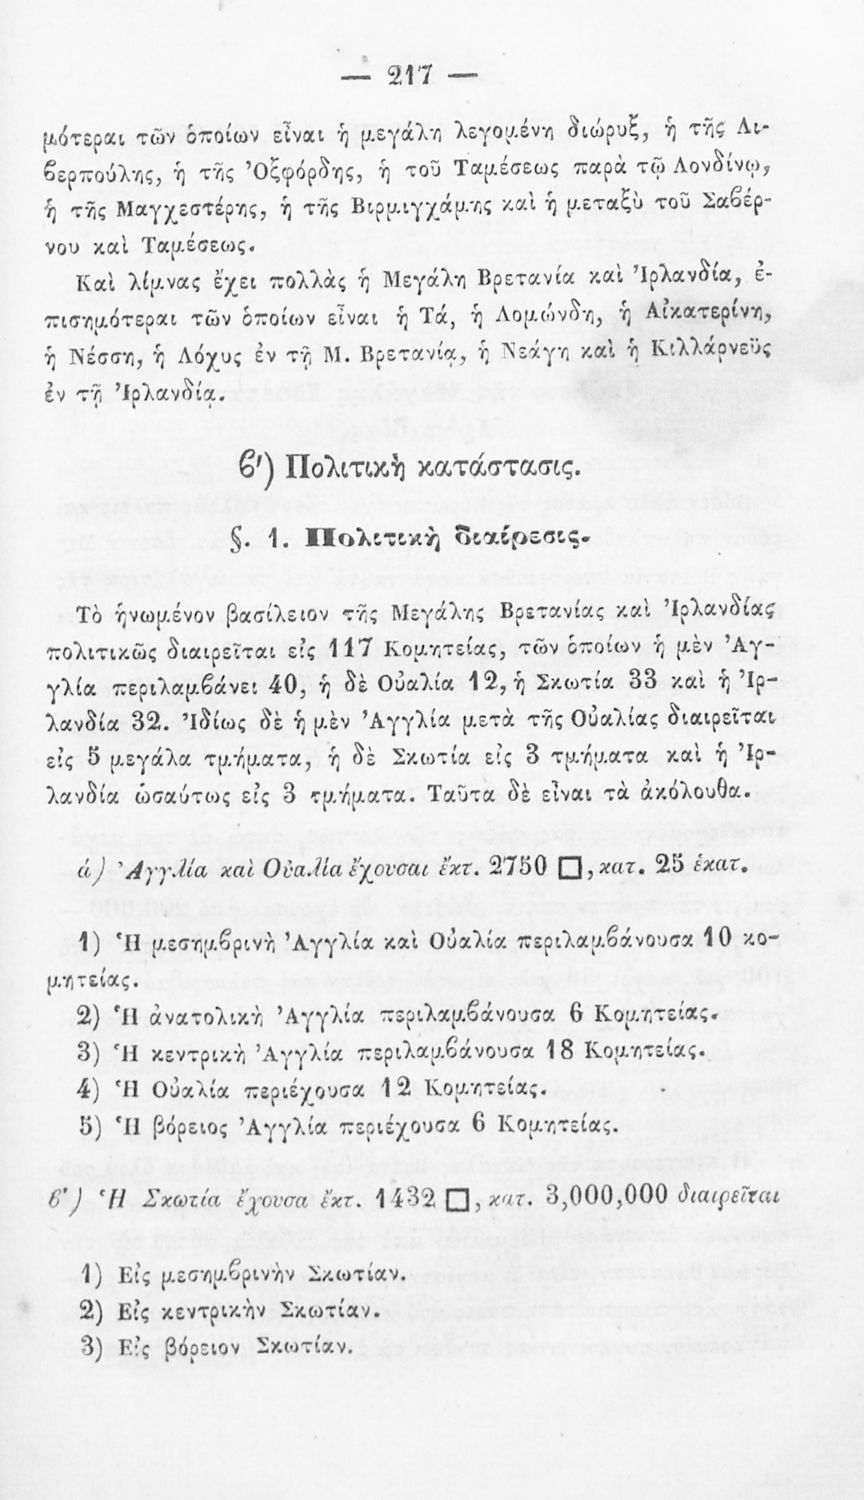 — 217 —
μότεραι τῶν ὁποίων εἶναι ἡ μεγάλη λεγομένη διώρυξ, ἡ τῆς Λι-
βερπούλης, ἡ τῆς Ὀξφόρδης, ἡ τοῦ Ταμέσεως παρὰ τῷ Λονδίνῳ,
ἡ τῆς Μαγχεστέρης, ἡ τῆς Βιρμιγχάμης καὶ ἡ μεταξὺ τοῦ Σαβέρ-
νου καὶ Ταμέσεως.
Καὶ λίμνας ἔχει πολλὰς ἡ Μεγάλη Βρετανία καὶ Ἰρλανδία, ἐ-
πισημότεραι τῶν ὁποίων εἶναι ἡ Τά, ἡ Λομώνδη, ἡ Αἰκατερίνη,
ἡ Νέσση, ἡ Λόχυς ἐν τῇ Μ. Βρετανίᾳ, ἡ Νεάγη καὶ ἡ Κιλλάρνεϋς
ἐν τῇ Ἰρλανδίᾳ.
β′) Πολιτικὴ κατάστασις.
§. 1. Πολιτικὴ διαίρεσις.
Τὸ ἡνωμένον βασίλειον τῆς Μεγάλης Βρετανίας καὶ Ἰρλανδίας
πολιτικῶς διαιρεῖται εἰς 117 Κομητείας, τῶν ὁποίων ἡ μὲν Ἀγ-
γλία περιλαμβάνει 40, ἡ δὲ Οὐαλία 12, ἡ Σκωτία 33 καὶ ἡ Ἰρ-
λανδία 32. Ἰδίως δὲ ἡ μὲν Ἀγγλία μετὰ τῆς Οὐαλίας διαιρεῖται
εἰς 5 μεγάλα τμήματα, ἡ δὲ Σκωτία εἰς 3 τμήματα καὶ ἡ Ἰρ-
λανδία ὡσαύτως εἰς 3 τμήματα. Ταῦτα δὲ εἶναι τὰ ἀκόλουθα.
ά) Ἀγγλία καὶ Οὐαλία ἔχουσαι ἔκτ. 2750 □, κατ. 25 ἑκατ.
1) Ἡ μεσημβρινὴ Ἀγγλία καὶ Οὐαλία περιλαμβάνουσα 10 κο-
μητείας.
2) Ἡ ἀνατολικὴ Ἀγγλία περιλαμβάνουσα 6 Κομητείας.
3) Ἡ κεντρικὴ Ἀγγλία περιλαμβάνουσα 18 Κομητείας.
4) Ἡ Οὐαλία περιέχουσα 12 Κομητείας.
5) Ἡ βόρειος Ἀγγλία περιέχουσα 6 Κομητείας.
β′) Ἡ Σκωτία ἔχουσα ἔκτ. 1432 □, κατ. 3,000,000 διαιρεῖται
1) Εἰς μεσημβρινὴν Σκωτίαν.
2) Εἰς κεντρικὴν Σκωτίαν.
3) Εἰς βόρειον Σκωτίαν.